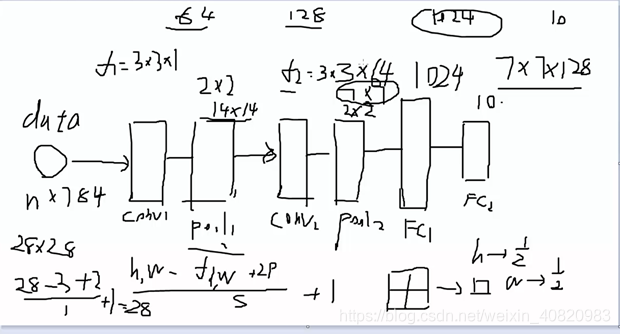 64 128 1024 10
f1=3×3×1 f2=3×3×64 1024 7×7×128
2×2
14×14 7×7 2×2 10
data
n×784
conv1 pool1 conv2 pool2 FC1 FC2
28×28
28-3+2/1 +1=28 h,w-f1,w+2p/s +1
h→1/2
w→1/2
https://blog.csdn.net/weixin_40820983